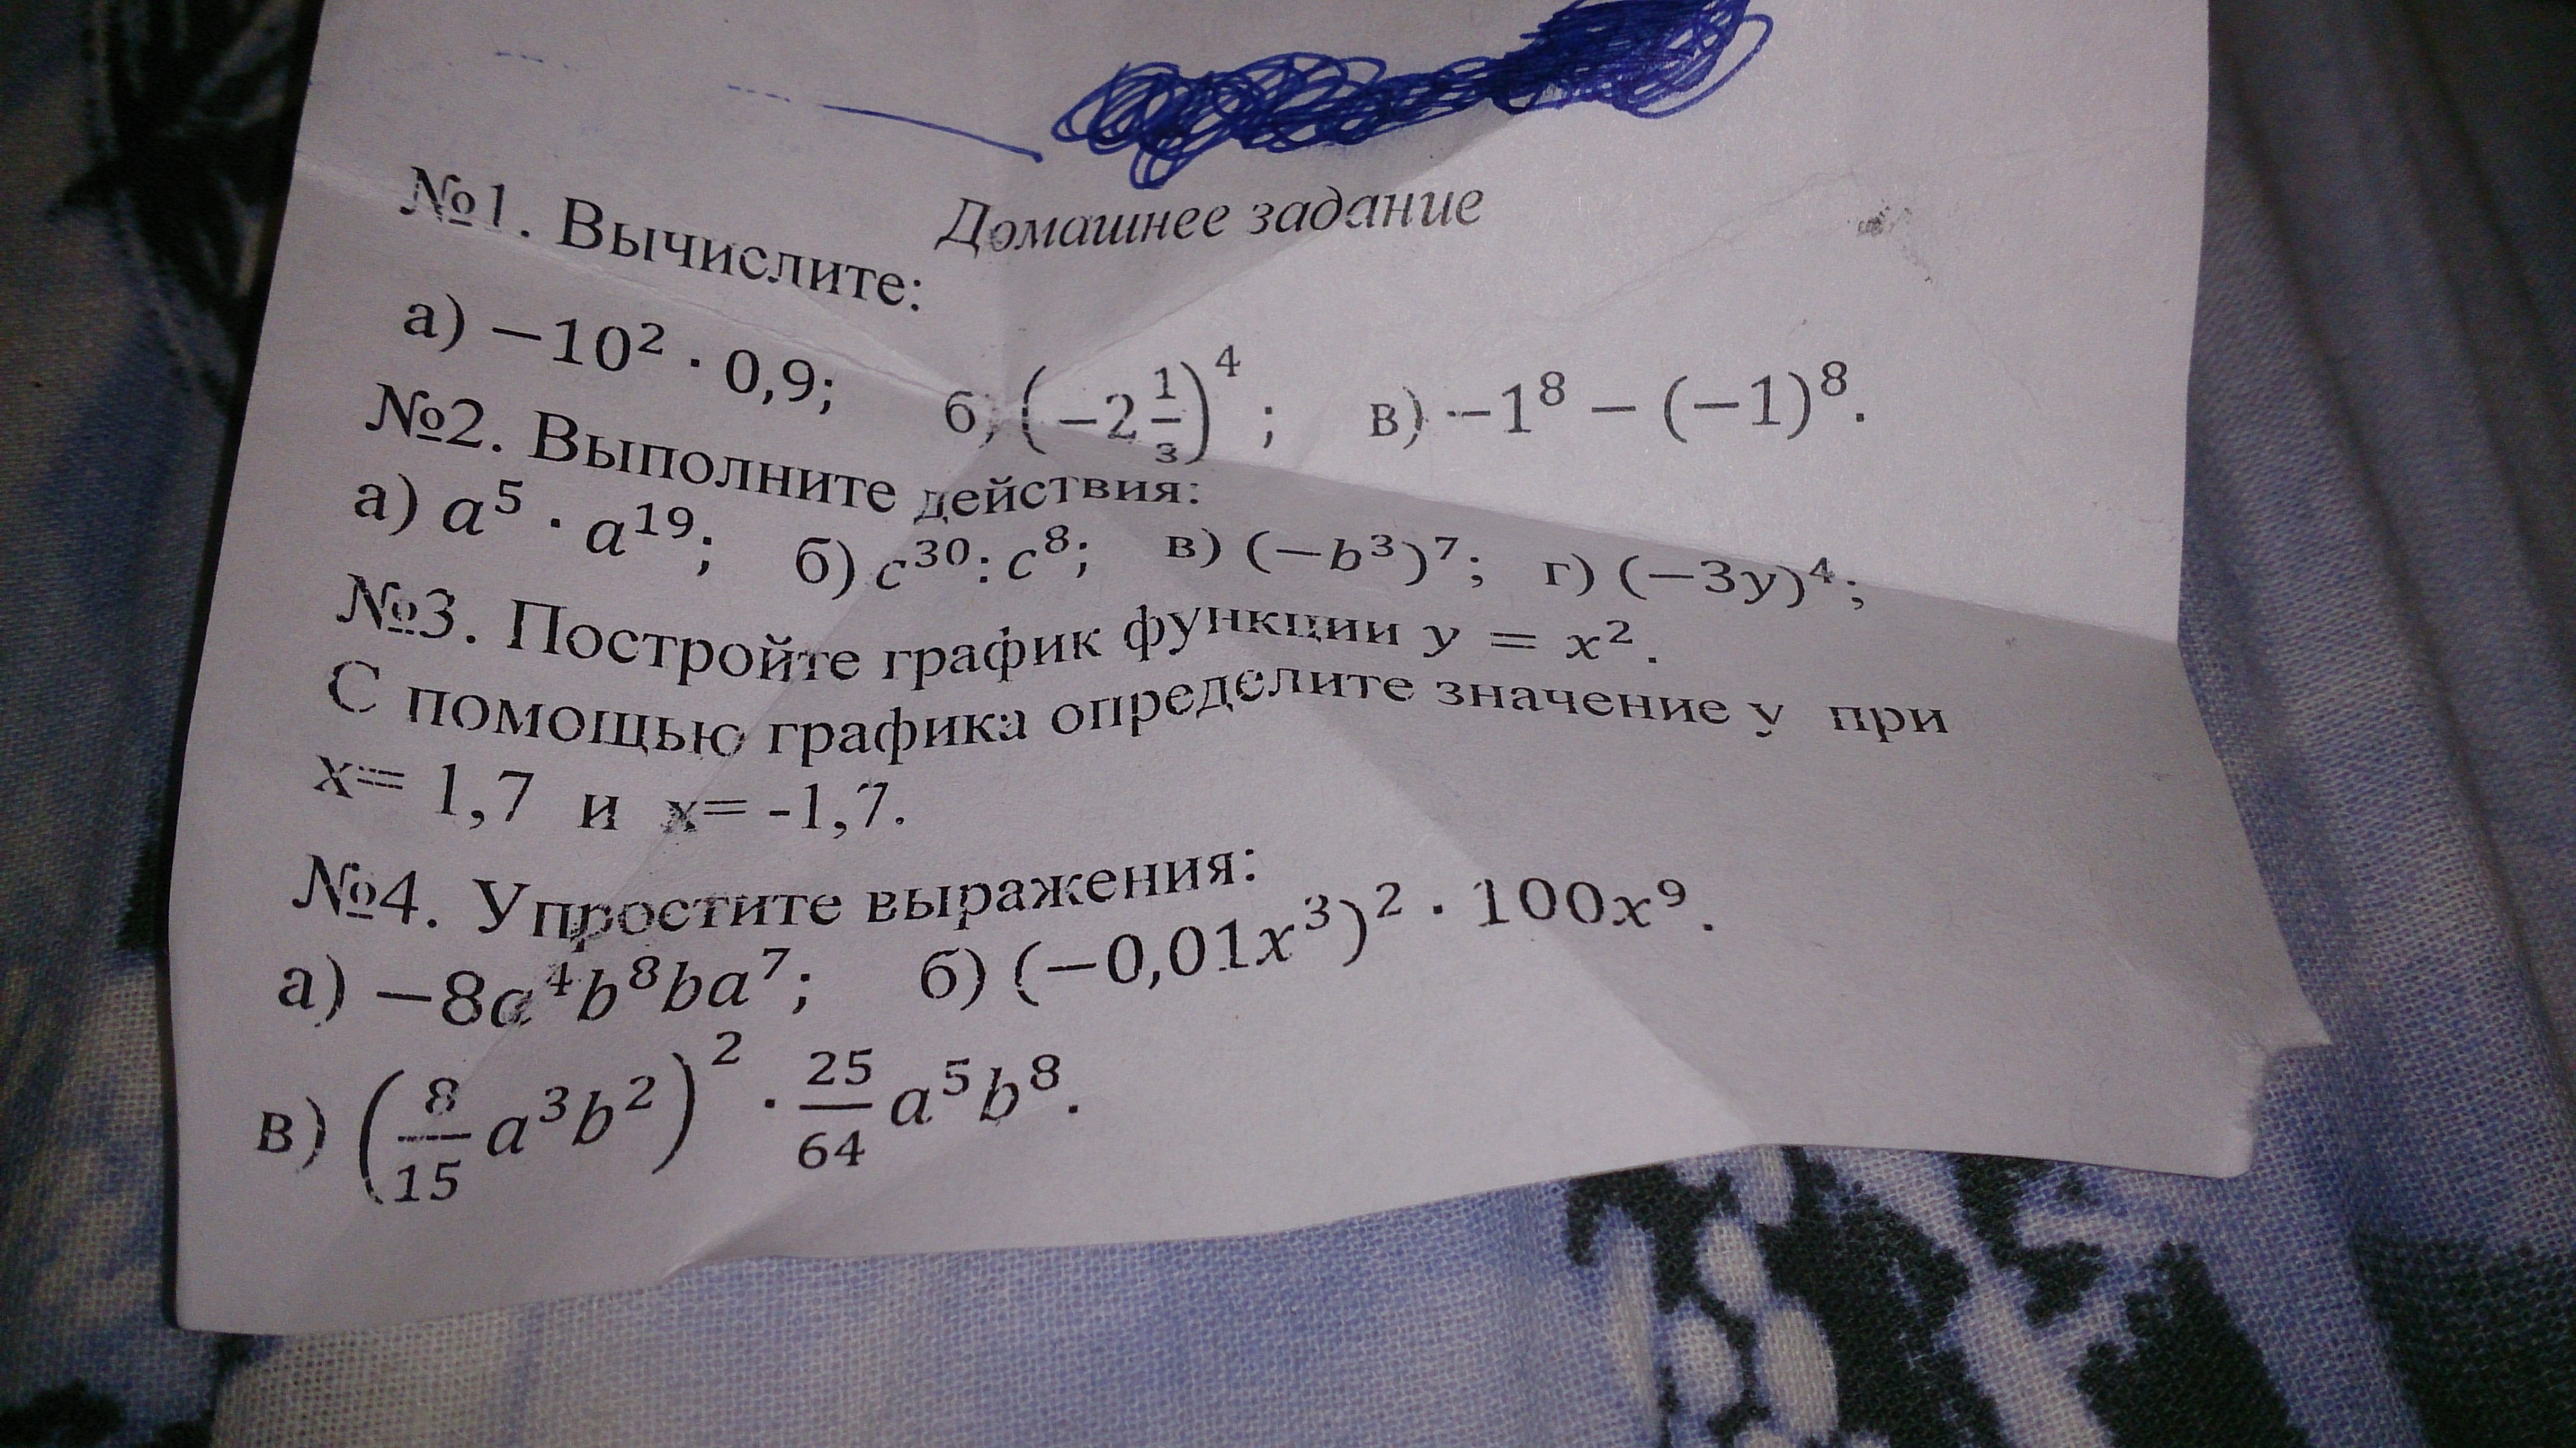 Домашнее задание
№1. Вычислите:
а) −10² · 0,9; б) (−2 1/3)⁴ ; в) −1⁸ − (−1)⁸.
№2. Выполните действия:
а) a⁵ · a¹⁹; б) c³⁰: c⁸; в) (−b³)⁷; г) (−3y)⁴;
№3. Постройте график функции y = x².
С помощью графика определите значение y при
x= 1,7 и x= -1,7.
№4. Упростите выражения:
а) −8a⁴b⁸ba⁷; б) (−0,01x³)² · 100x⁹.
в) (8/15 a³b²)² · 25/64 a⁵b⁸.